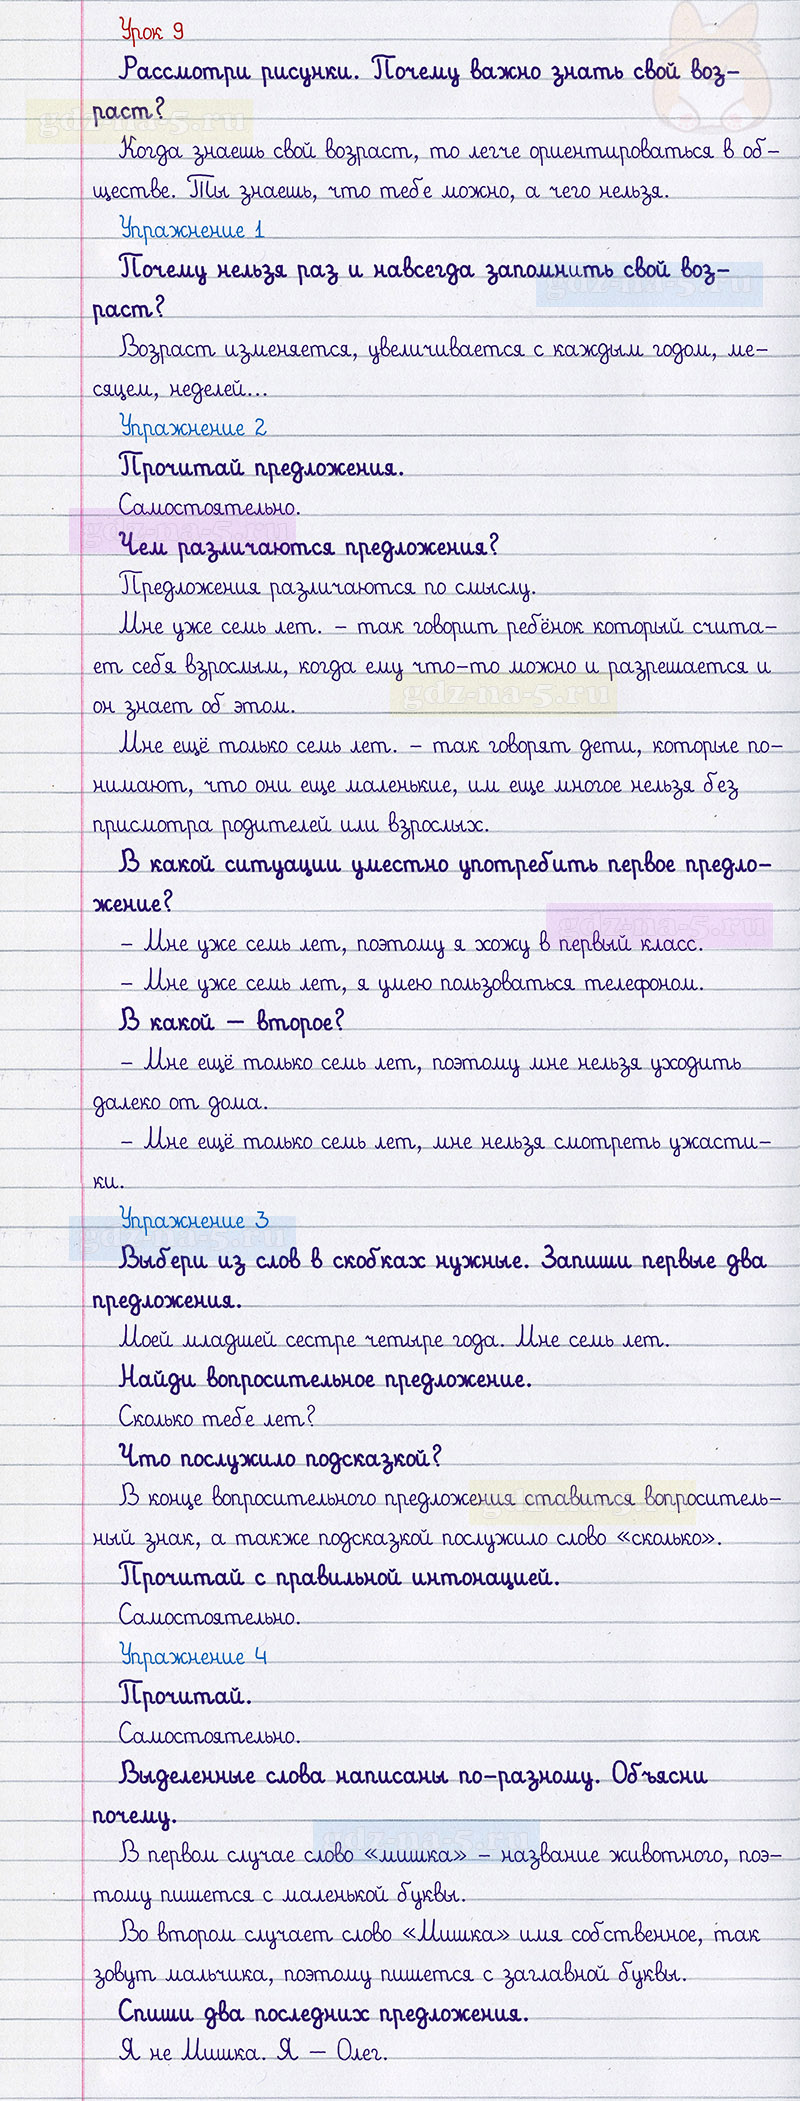 Урок 9
Рассмотри рисунки. Почему важно знать свой воз-
раст?
gdz-na-5.ru
Когда знаешь свой возраст, то легче ориентироваться в об-
ществе. Ты знаешь, что тебе можно, а чего нельзя.
Упражнение 1
Почему нельзя раз и навсегда запомнить свой воз-
gdz-na-5.ru
раст?
Возраст изменяется, увеличивается с каждым годом, ме-
сяцем, неделей...
Упражнение 2
Прочитай предложения.
Самостоятельно.
gdz-na-5.ru
Чем различаются предложения?
Предложения различаются по смыслу.
Мне уже семь лет. – так говорит ребёнок который счита-
ет себя взрослым, когда ему что-то можно и разрешается и
gdz-na-5.ru
он знает об этом.
Мне ещё только семь лет. – так говорят дети, которые по-
нимают, что они еще маленькие, им еще многое нельзя без
присмотра родителей или взрослых.
В какой ситуации уместно употребить первое предло-
жение?
gdz-na-5.ru
– Мне уже семь лет, поэтому я хожу в первый класс.
– Мне уже семь лет, я умею пользоваться телефоном.
В какой – второе?
– Мне ещё только семь лет, поэтому мне нельзя уходить
далеко от дома.
– Мне ещё только семь лет, мне нельзя смотреть ужасти-
ки.
Упражнение 3
gdz-na-5.ru
Выбери из слов в скобках нужные. Запиши первые два
предложения.
Моей младшей сестре четыре года. Мне семь лет.
Найди вопросительное предложение.
Сколько тебе лет?
Что послужило подсказкой?
В конце вопросительного предложения ставится вопроситель-
gdz-na-5.ru
ный знак, а также подсказкой послужило слово «сколько».
Прочитай с правильной интонацией.
Самостоятельно.
Упражнение 4
Прочитай.
Самостоятельно.
Выделенные слова написаны по-разному. Объясни
почему.
gdz-na-5.ru
В первом случае слово «мишка» – название животного, поэ-
тому пишется с маленькой буквы.
Во втором случает слово «Мишка» имя собственное, так
зовут мальчика, поэтому пишется с заглавной буквы.
Спиши два последних предложения.
Я не Мишка. Я – Олег.